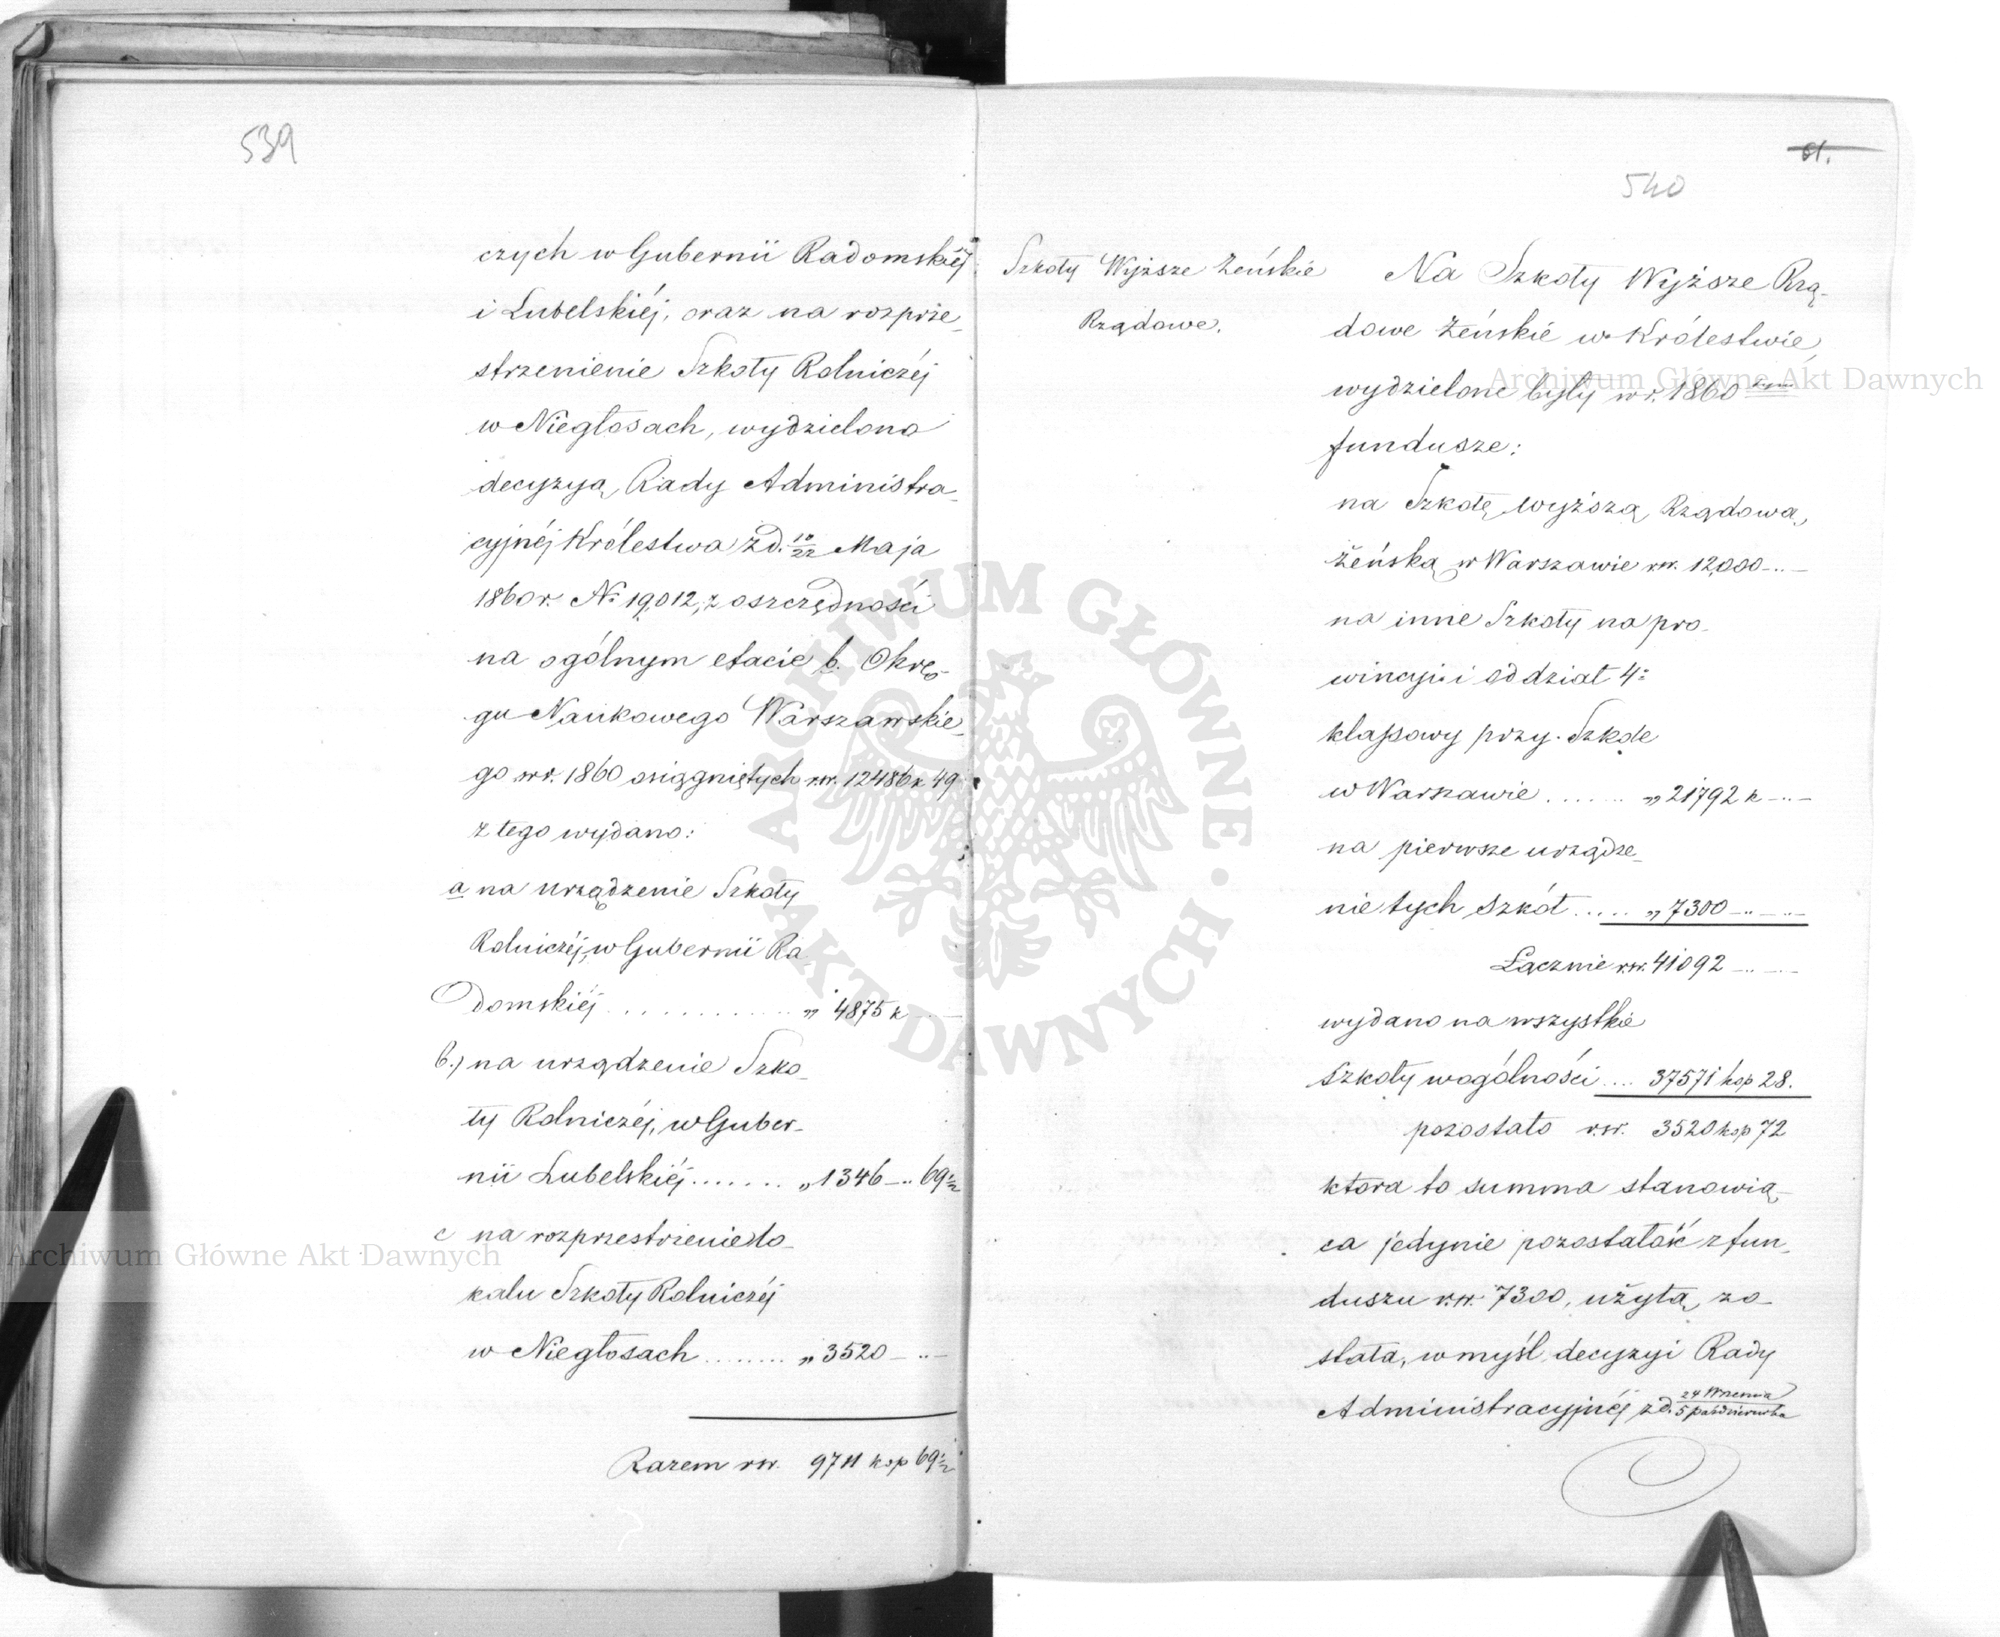 539
czych w Gubernii Radomskiéj
i Lubelskiéj, oraz na rozprze_
strzenienie Szkoły Rolniczéj
w Niegłosach, wydzielona
decyzyą Rady Administra_
cyjnéj Królestwa z d. 10/22 Maja
1860 r. No 19,012, z oszczędności
na ogólnym etacie b. Okrę_
gu Naukowego Warszawskie_
go w r. 1860 osiągniętych rsr. 12486 k 49
z tego wydano:
a na urządzenie Szkoły
Rolniczéj, w Gubernii Ra_
domskiéj . . . . . . . . . . . „ 4875 k _
b.) na urządzenie Szko_
ły Rolniczéj, w Guber_
nii Lubelskiéj . . . . . . . „ 1346 _ „ 69 1/2
c na rozprzestrzenie lo_
kalu Szkoły Rolniczéj
w Niegłosach . . . . . . . . „ 3520 _ „ _
Razem rsr. 9741 kop 69 1/2
61.
540
Szkoły Wyższe Żeńskie
Rządowe.
Na Szkoły Wyższe Rzą_
dowe Żeńskie w Królestwie,
wydzielone były w r. 1860 tym
fundusze:
na Szkołę wyższą Rządową,
Żeńską w Warszawie rsr. 12,000 _ „ _
na inne Szkoły na pro_
wincyi i oddział 4o
klassowy przy Szkole
w Warszawie . . . . . . . „ 21792 k _ „ _
na pierwsze urządze_
nie tych Szkół . . . . . „ 7300 _ „ _ „ _
Łącznie rsr. 41092 _ „ _
wydano na wszystkie
szkoły wogólności . . . . 37571 kop 28.
pozostało rsr. 3520 kop 72
która to summa stanowią_
ca jedynie pozostałość z fun_
duszu rsr. 7300, użytą zo_
stała, w myśl decyzyi Rady
Administracyjnéj z d. 24 Września/5 Października
Archiwum Główne Akt Dawnych
Archiwum Główne Akt Dawnych
ARCHIWUM GŁÓWNE · AKT DAWNYCH ·